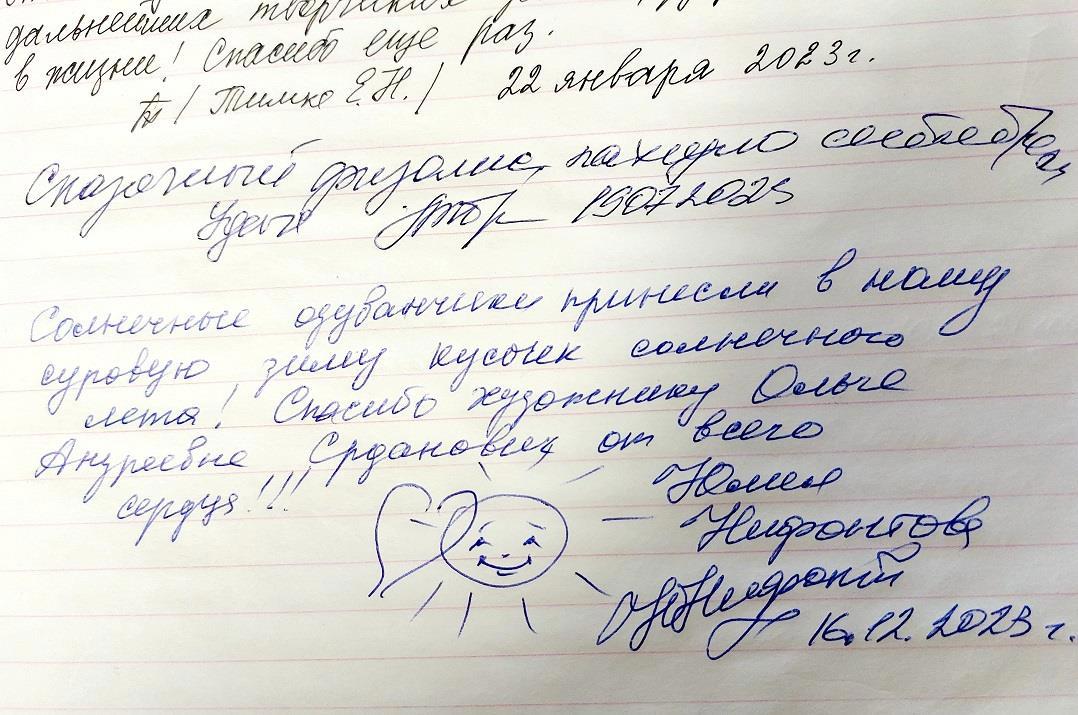 дальнейших творческих
в жизни! Спасибо еще раз.
/ Тимко Е.Н. / 22 января 2023 г.
Сказочный физалис,
19072023
Солнечные одуванчики принесли в нашу
суровую зиму кусочек солнечного
лета! Спасибо художнику Ольге
Андреевне Срданович от всего
сердца!!!
Юлия
Нифонтова
16.12.2023 г.